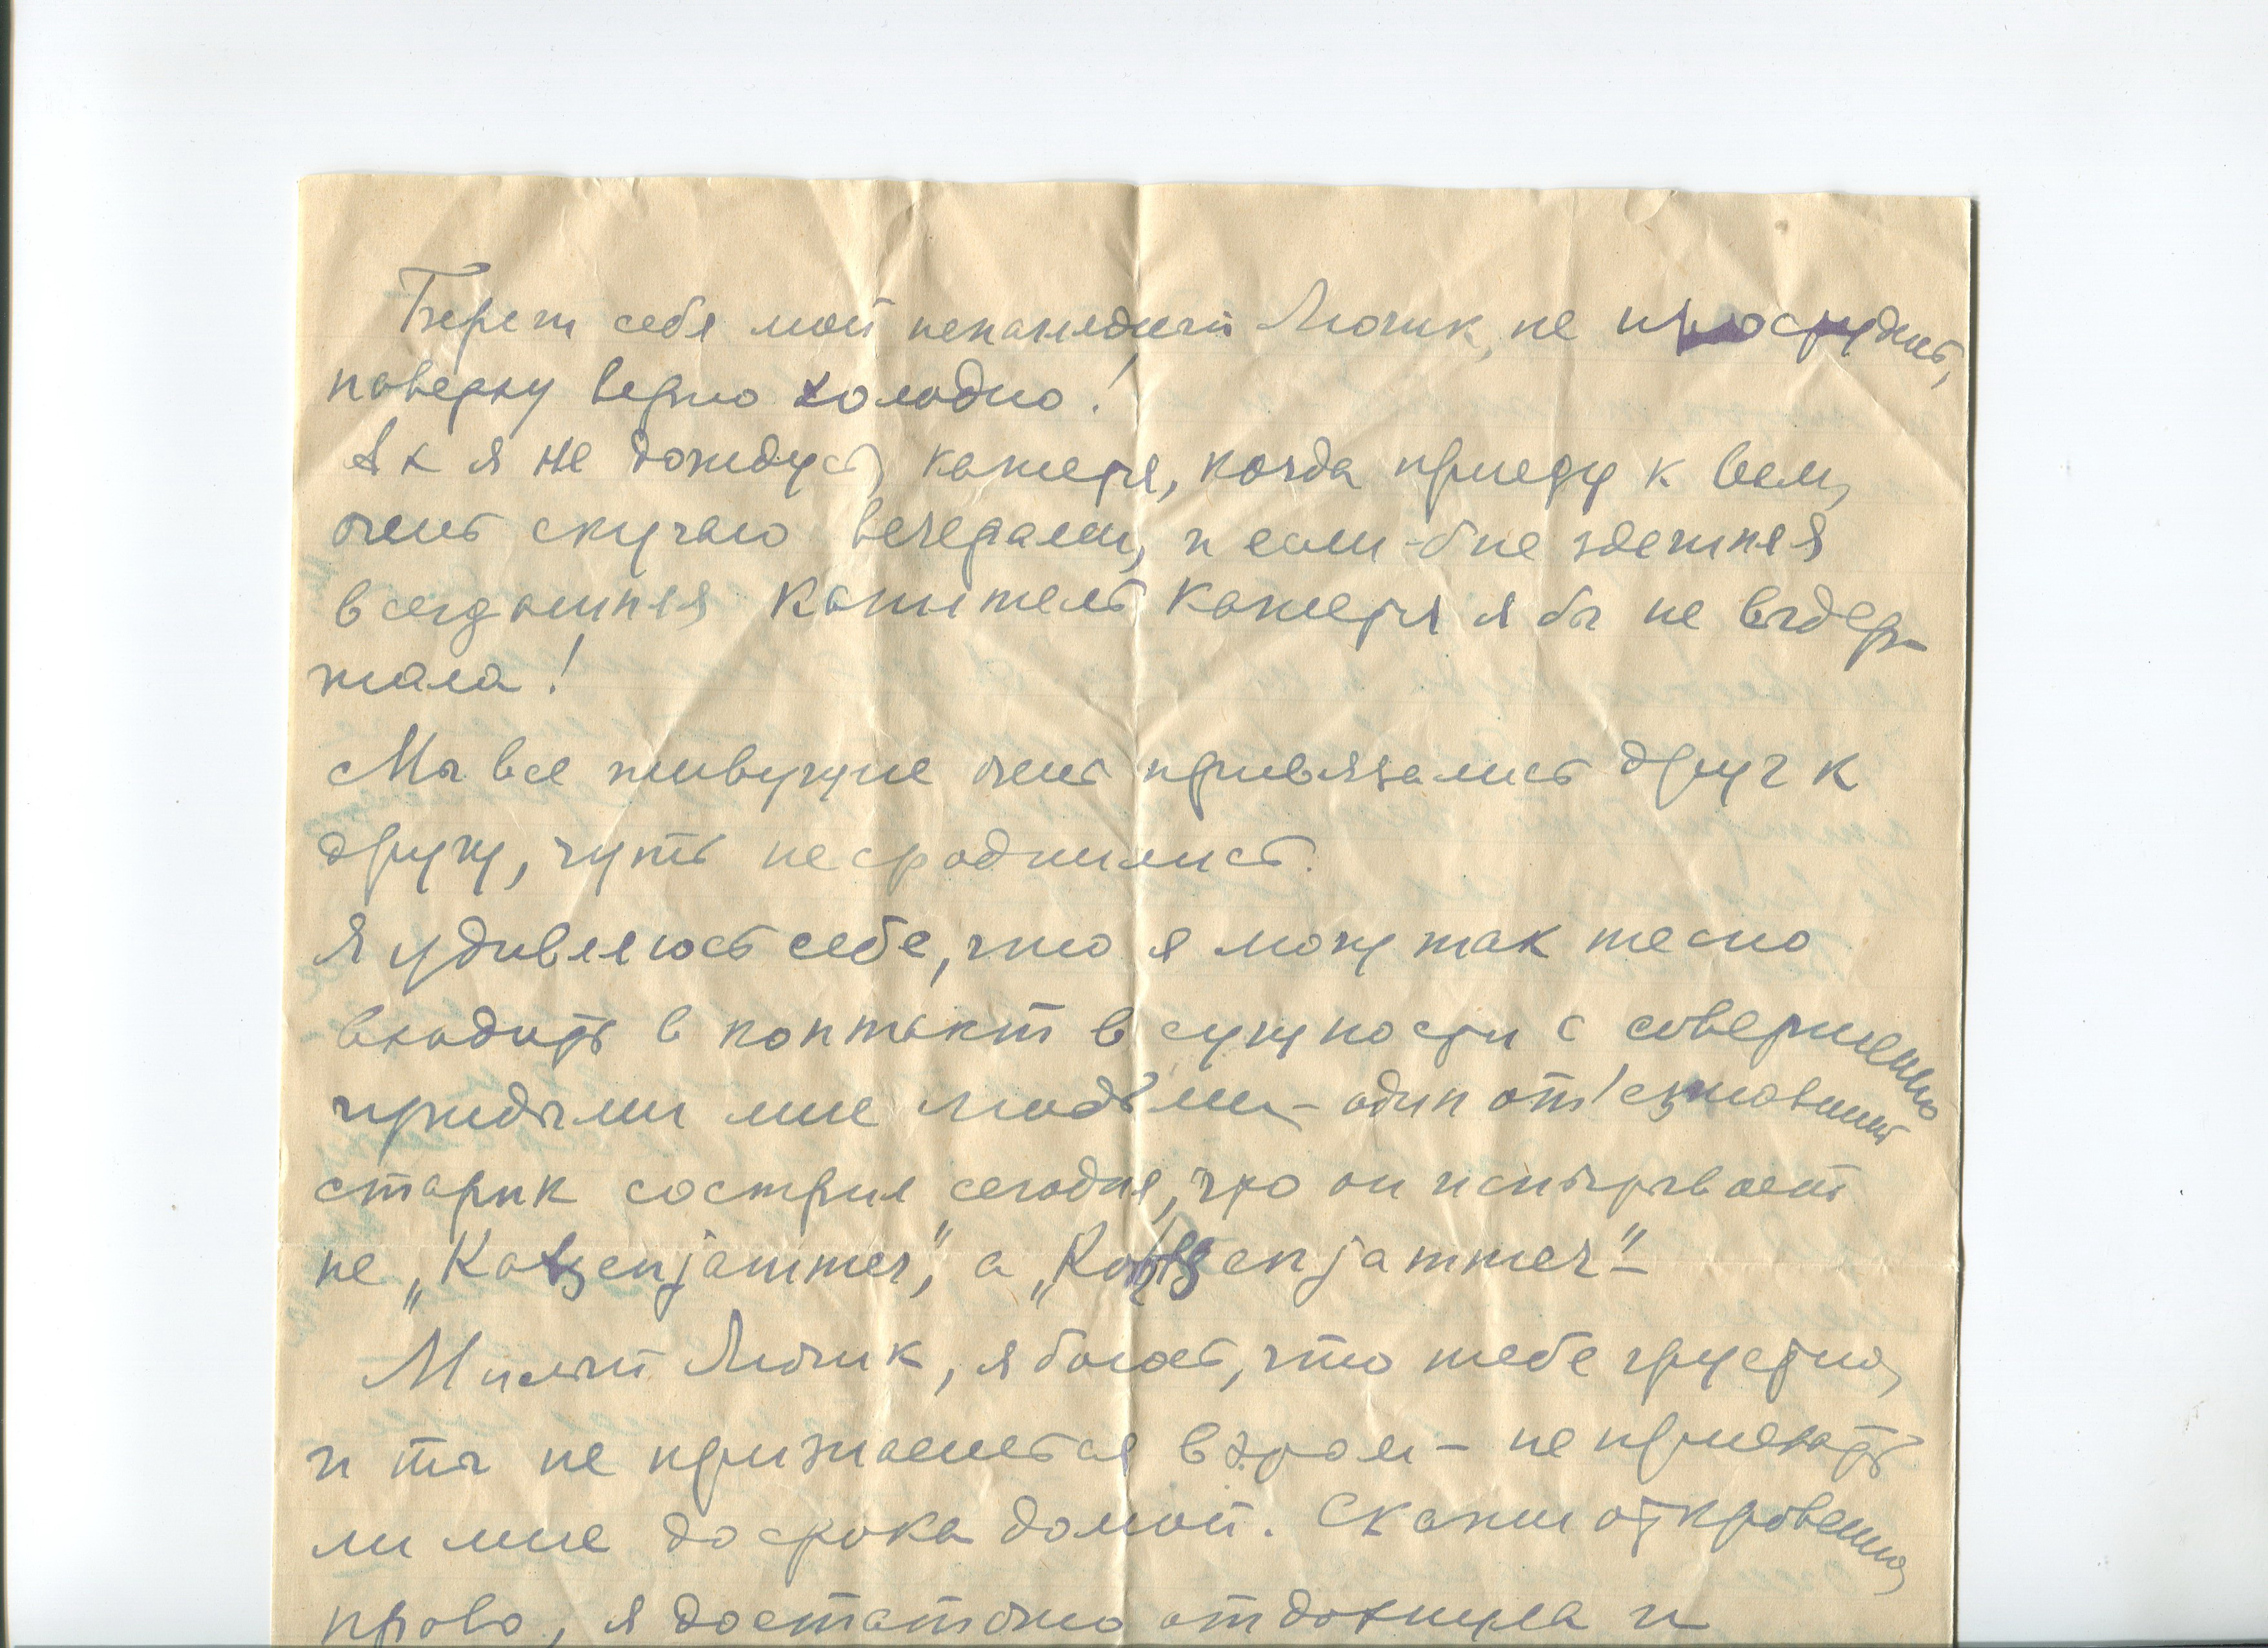 Берегите себя мой ненаглядный Люсик, не простудись,
наверху верно холодно!
Ах я не дождусь, кажется, когда приеду к вам,
очень скучаю вечерами, и если-б не здешняя
всегдашняя канитель кажется я бы не выдер-
жала!
Мы все живущие очень привязались друг к
другу, чуть не сроднились.
Я удивляюсь себе, что я могу так тесно
входить в контакт в сущности с совершенно
чуждыми мне людьми – один от'езжавший
старик сострил сегодня, что он испытывает
не „Katzenjammer", а „Rotzenjammer" –
Милый Люсик, я боюсь, что тебе грустно,
и ты не признаешься в этом – не приехать
ли мне до срока домой. Скажи откровенно,
право, я достаточно отдохнула и